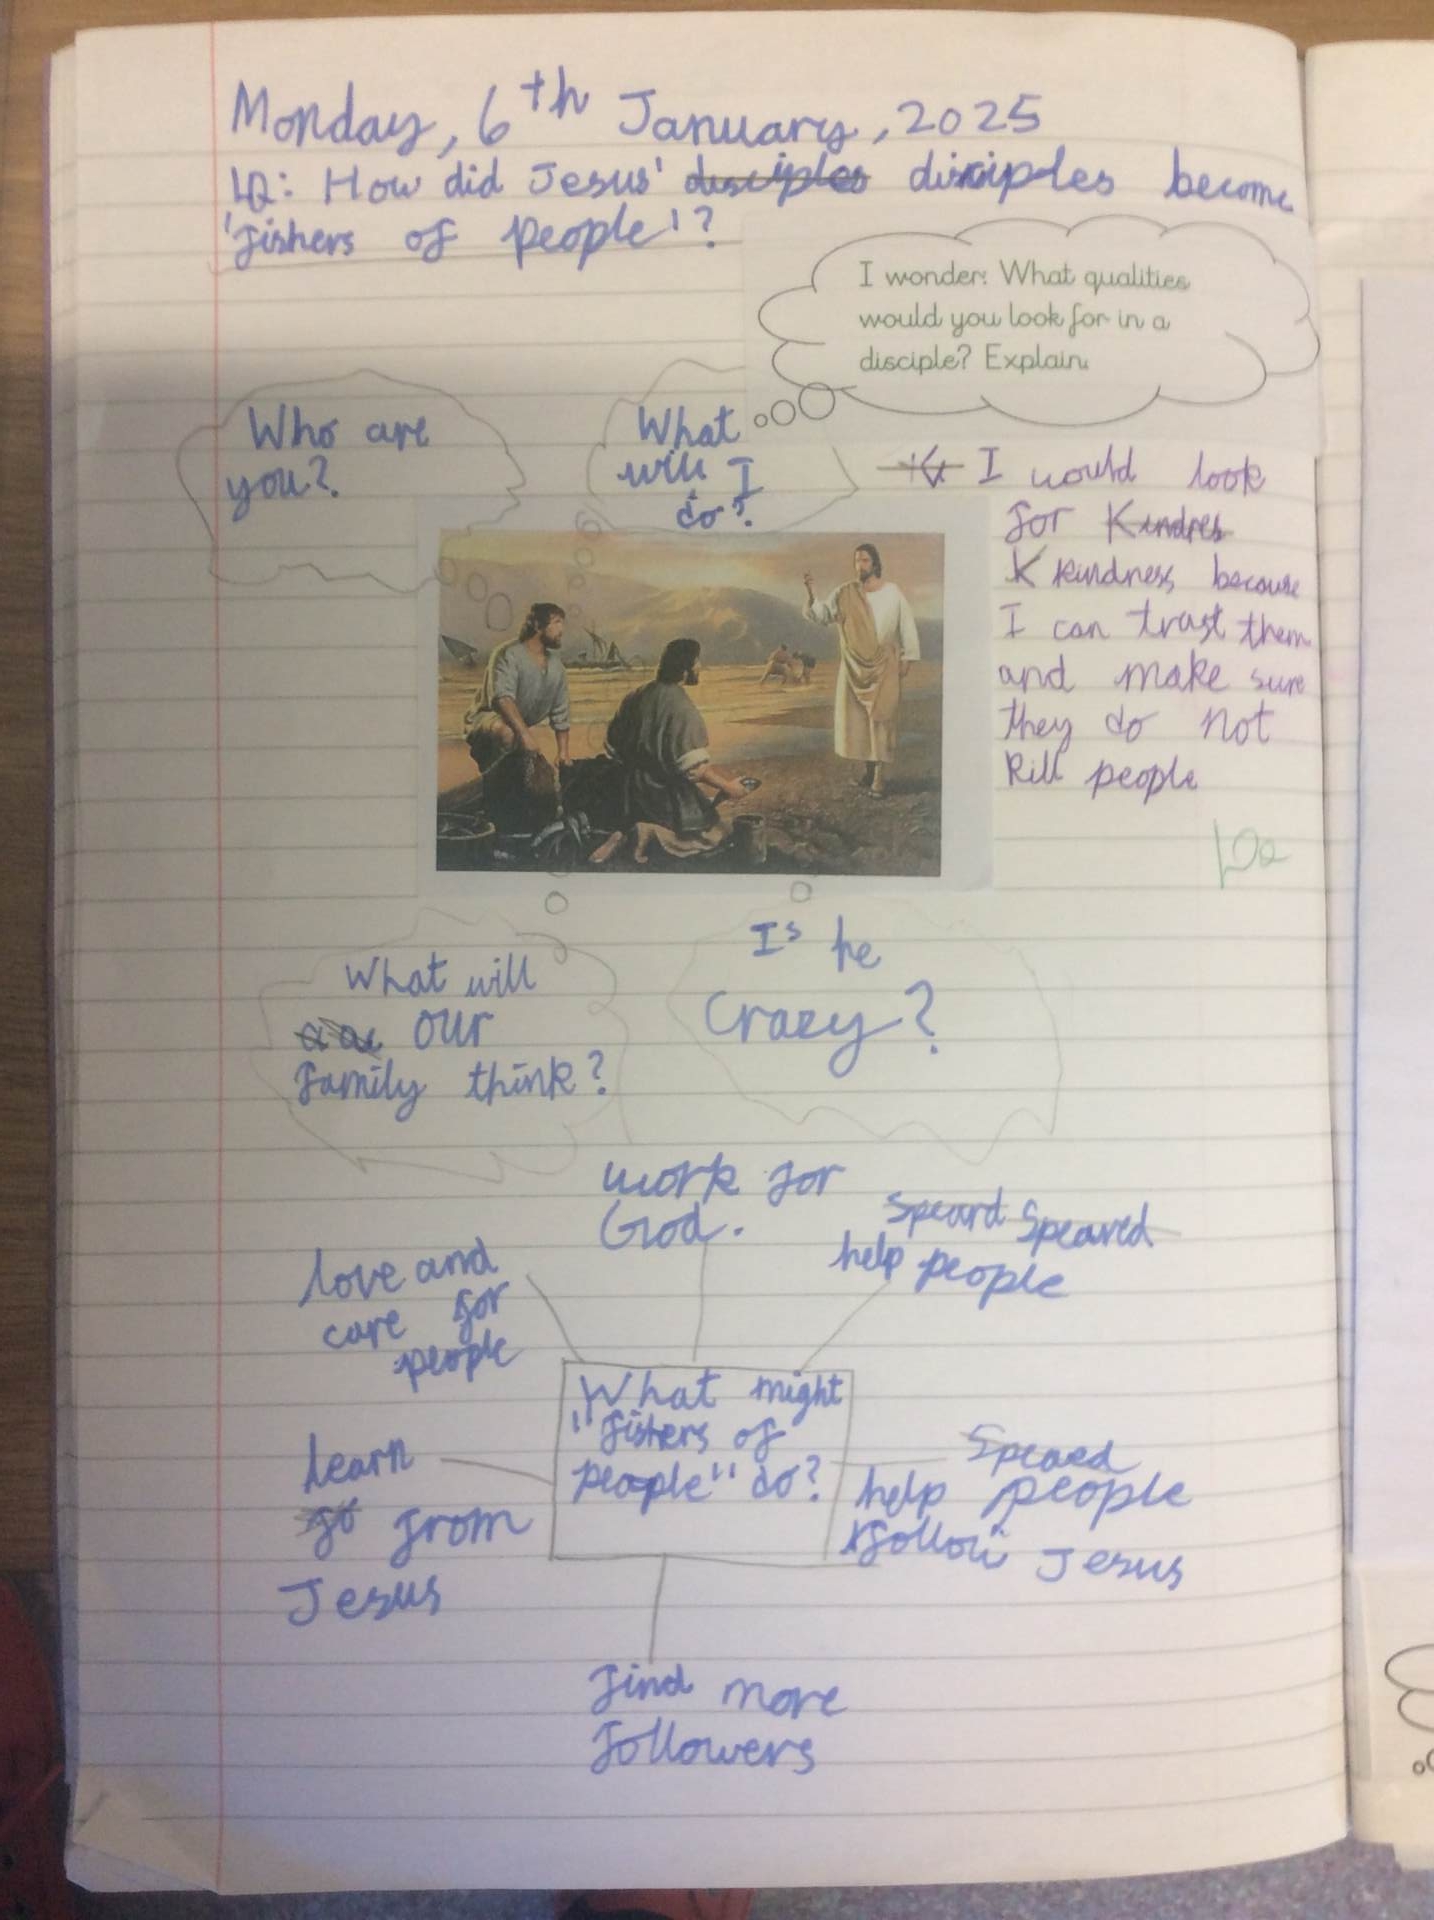 Monday, 6th January, 2025
LQ: How did Jesus' disciples disciples become
'fishers of people'?
I wonder: What qualities
would you look for in a
disciple? Explain.
Who are
you?
What
will I
do?
I would look
for Kindres
K kindness because
I can trust them
and make sure
they do not
kill people
What will
our
family think?
Is he
Crazy?
work for
God.
Speard Speared
help people
love and
care for
people
What might
"fishers of
people" do?
learn
from
Jesus
Speaed
help people
follow Jesus
find more
followers